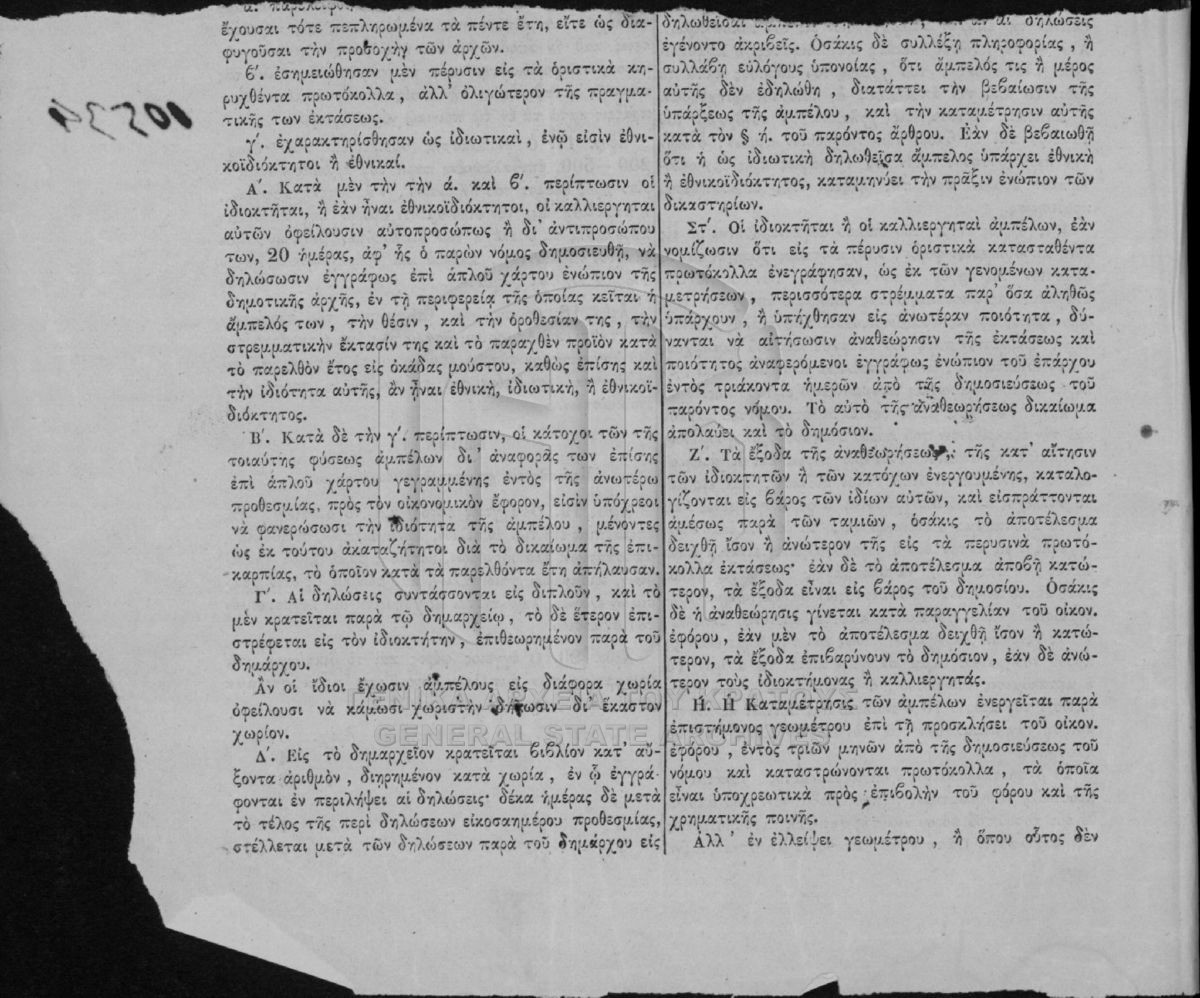 ἔχουσαι τότε πεπληρωμένα τὰ πέντε ἔτη, εἴτε ὡς δια-
φυγοῦσαι τὴν προσοχὴν τῶν ἀρχῶν.
β΄. ἐσημειώθησαν μὲν πέρυσιν εἰς τὰ ὁριστικὰ κη-
ρυχθέντα πρωτόκολλα, ἀλλ' ὀλιγώτερον τῆς πραγμα-
τικῆς των ἐκτάσεως.
γ΄. ἐχαρακτηρίσθησαν ὡς ἰδιωτικαὶ, ἐνῷ εἰσὶν ἐθνι-
κοϊδιόκτητοι ἢ ἐθνικαί.
Α΄. Κατὰ μὲν τὴν τὴν ά. καὶ β΄. περίπτωσιν οἱ
ἰδιοκτῆται, ἢ ἐὰν ἦναι ἐθνικοϊδιόκτητοι, οἱ καλλιεργηταὶ
αὐτῶν ὀφείλουσιν αὐτοπροσώπως ἢ δι' ἀντιπροσώπου
των, 20 ἡμέρας, ἀφ' ἧς ὁ παρὼν νόμος δημοσιευθῇ, νὰ
δηλώσωσιν ἐγγράφως ἐπὶ ἁπλοῦ χάρτου ἐνώπιον τῆς
δημοτικῆς ἀρχῆς, ἐν τῇ περιφερείᾳ τῆς ὁποίας κεῖται ἡ
ἄμπελός των, τὴν θέσιν, καὶ τὴν ὁροθεσίαν της, τὴν
στρεμματικὴν ἔκτασίν της καὶ τὸ παραχθὲν προϊὸν κατὰ
τὸ παρελθὸν ἔτος εἰς ὀκάδας μούστου, καθὼς ἐπίσης καὶ
τὴν ἰδιότητα αὐτῆς, ἂν ἦναι ἐθνικὴ, ἰδιωτικὴ, ἢ ἐθνικοϊ-
διόκτητος.
Β΄. Κατὰ δὲ τὴν γ΄. περίπτωσιν, οἱ κάτοχοι τῶν τῆς
τοιαύτης φύσεως ἀμπέλων δι' ἀναφορᾶς των ἐπίσης
ἐπὶ ἁπλοῦ χάρτου γεγραμμένης ἐντὸς τῆς ἀνωτέρω
προθεσμίας, πρὸς τὸν οἰκονομικὸν ἔφορον, εἰσὶν ὑπόχρεοι
νὰ φανερώσωσι τὴν ἰδιότητα τῆς ἀμπέλου, μένοντες
ὡς ἐκ τούτου ἀκαταζήτητοι διὰ τὸ δικαίωμα τῆς ἐπι-
καρπίας, τὸ ὁποῖον κατὰ τὰ παρελθόντα ἔτη ἀπήλαυσαν.
Γ΄. Αἱ δηλώσεις συντάσσονται εἰς διπλοῦν, καὶ τὸ
μὲν κρατεῖται παρὰ τῷ δημαρχείῳ, τὸ δὲ ἕτερον ἐπι-
στρέφεται εἰς τὸν ἰδιοκτήτην, ἐπιθεωρημένον παρὰ τοῦ
δημάρχου.
Ἂν οἱ ἴδιοι ἔχωσιν ἀμπέλους εἰς διάφορα χωρία
ὀφείλουσι νὰ κάμωσι χωριστὴν δήλωσιν δι' ἕκαστον
χωρίον.
Δ΄. Εἰς τὸ δημαρχεῖον κρατεῖται βιβλίον κατ' αὔ-
ξοντα ἀριθμὸν, διῃρημένον κατὰ χωρία, ἐν ᾧ ἐγγρά-
φονται ἐν περιλήψει αἱ δηλώσεις· δέκα ἡμέρας δὲ μετὰ
τὸ τέλος τῆς περὶ δηλώσεων εἰκοσαημέρου προθεσμίας,
στέλλεται μετὰ τῶν δηλώσεων παρὰ τοῦ δημάρχου εἰς
ἐγένοντο ἀκριβεῖς. Ὁσάκις δὲ συλλέξῃ πληροφορίας, ἢ
συλλάβῃ εὐλόγους ὑπονοίας, ὅτι ἄμπελός τις ἢ μέρος
αὐτῆς δὲν ἐδηλώθη, διατάττει τὴν βεβαίωσιν τῆς
ὑπάρξεως τῆς ἀμπέλου, καὶ τὴν καταμέτρησιν αὐτῆς
κατὰ τὸν § ή. τοῦ παρόντος ἄρθρου. Ἐὰν δὲ βεβαιωθῇ
ὅτι ἡ ὡς ἰδιωτικὴ δηλωθεῖσα ἄμπελος ὑπάρχει ἐθνικὴ
ἢ ἐθνικοϊδιόκτητος, καταμηνύει τὴν πρᾶξιν ἐνώπιον τῶν
δικαστηρίων.
Στ΄. Οἱ ἰδιοκτῆται ἢ οἱ καλλιεργηταὶ ἀμπέλων, ἐὰν
νομίζωσιν ὅτι εἰς τὰ πέρυσιν ὁριστικὰ κατασταθέντα
πρωτόκολλα ἐνεγράφησαν, ὡς ἐκ τῶν γενομένων κατα-
μετρήσεων, περισσότερα στρέμματα παρ' ὅσα ἀληθῶς
ὑπάρχουν, ἢ ὑπήχθησαν εἰς ἀνωτέραν ποιότητα, δύ-
νανται νὰ αἰτήσωσιν ἀναθεώρησιν τῆς ἐκτάσεως καὶ
ποιότητος ἀναφερόμενοι ἐγγράφως ἐνώπιον τοῦ ἐπάρχου
ἐντὸς τριάκοντα ἡμερῶν ἀπὸ τῆς δημοσιεύσεως τοῦ
παρόντος νόμου. Τὸ αὐτὸ τῆς ἀναθεωρήσεως δικαίωμα
ἀπολαύει καὶ τὸ δημόσιον.
Ζ΄. Τὰ ἔξοδα τῆς ἀναθεωρήσεως, τῆς κατ' αἴτησιν
τῶν ἰδιοκτητῶν ἢ τῶν κατόχων ἐνεργουμένης, καταλο-
γίζονται εἰς βάρος τῶν ἰδίων αὐτῶν, καὶ εἰσπράττονται
ἀμέσως παρὰ τῶν ταμιῶν, ὁσάκις τὸ ἀποτέλεσμα
δειχθῇ ἴσον ἢ ἀνώτερον τῆς εἰς τὰ περυσινὰ πρωτό-
κολλα ἐκτάσεως· ἐὰν δὲ τὸ ἀποτέλεσμα ἀποβῇ κατώ-
τερον, τὰ ἔξοδα εἶναι εἰς βάρος τοῦ δημοσίου. Ὁσάκις
δὲ ἡ ἀναθεώρησις γίνεται κατὰ παραγγελίαν τοῦ οἰκον.
ἐφόρου, ἐὰν μὲν τὸ ἀποτέλεσμα δειχθῇ ἴσον ἢ κατώ-
τερον, τὰ ἔξοδα ἐπιβαρύνουν τὸ δημόσιον, ἐὰν δὲ ἀνώ-
τερον τοὺς ἰδιοκτήμονας ἢ καλλιεργητάς.
Ή. Ἡ Καταμέτρησις τῶν ἀμπέλων ἐνεργεῖται παρὰ
ἐπιστήμονος γεωμέτρου ἐπὶ τῇ προσκλήσει τοῦ οἰκον.
ἐφόρου, ἐντὸς τριῶν μηνῶν ἀπὸ τῆς δημοσιεύσεως τοῦ
νόμου καὶ καταστρώνονται πρωτόκολλα, τὰ ὁποῖα
εἶναι ὑποχρεωτικὰ πρὸς ἐπιβολὴν τοῦ φόρου καὶ τῆς
χρηματικῆς ποινῆς.
Ἀλλ' ἐν ἐλλείψει γεωμέτρου, ἢ ὅπου οὗτος δὲν
ΓΕΝΙΚΑ ΑΡΧΕΙΑ ΤΟΥ ΚΡΑΤΟΥΣ
GENERAL STATE ARCHIVES